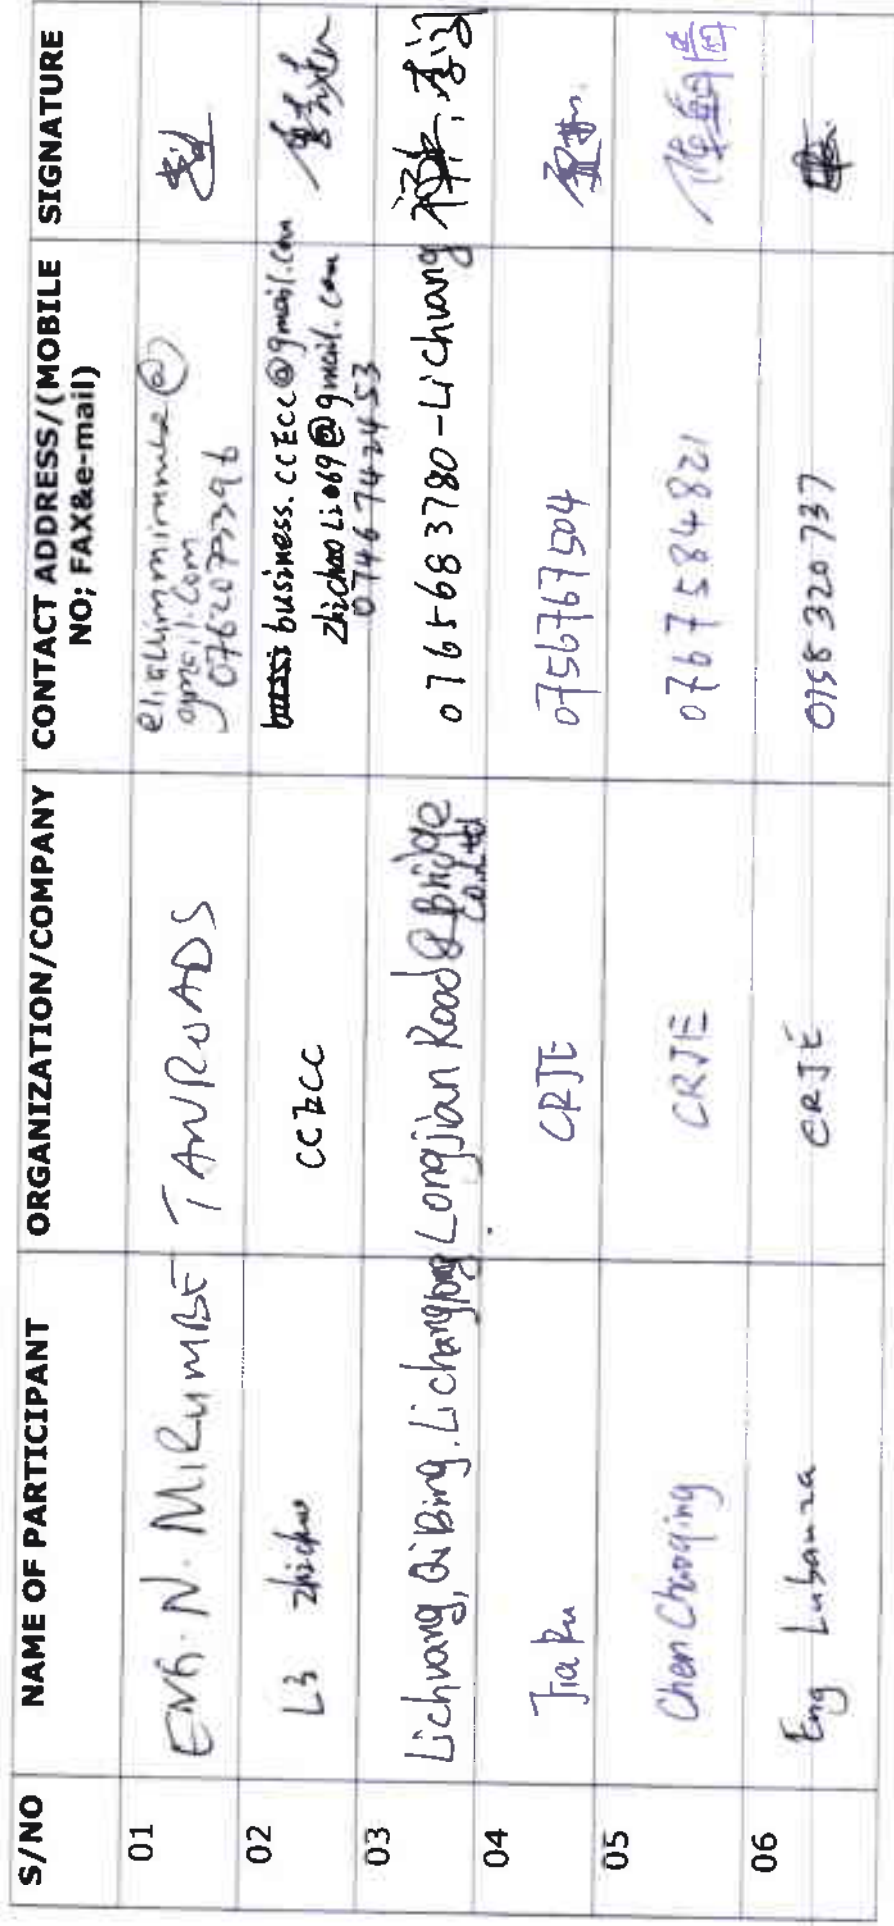 S/NO NAME OF PARTICIPANT ORGANIZATION/COMPANY CONTACT ADDRESS/(MOBILE NO; FAX&e-mail) SIGNATURE
01 ENG. N. MIRUMBE TANROADS
gmail.com
0762073396
02 Li zhichao CCECC business.ccEcc@gmail.com
zhichaoLi069@gmail.com
0746742453
03 Lichuang, QiBing. Lichangyong Longjian Road & Bridge Co.Ltd 0765683780-Lichuang
04 Jia Ru CRJE 0756767504
05 Chen Chaoqing CRJE 0767584821
06 Eng Lubanza CRJE 0758320737